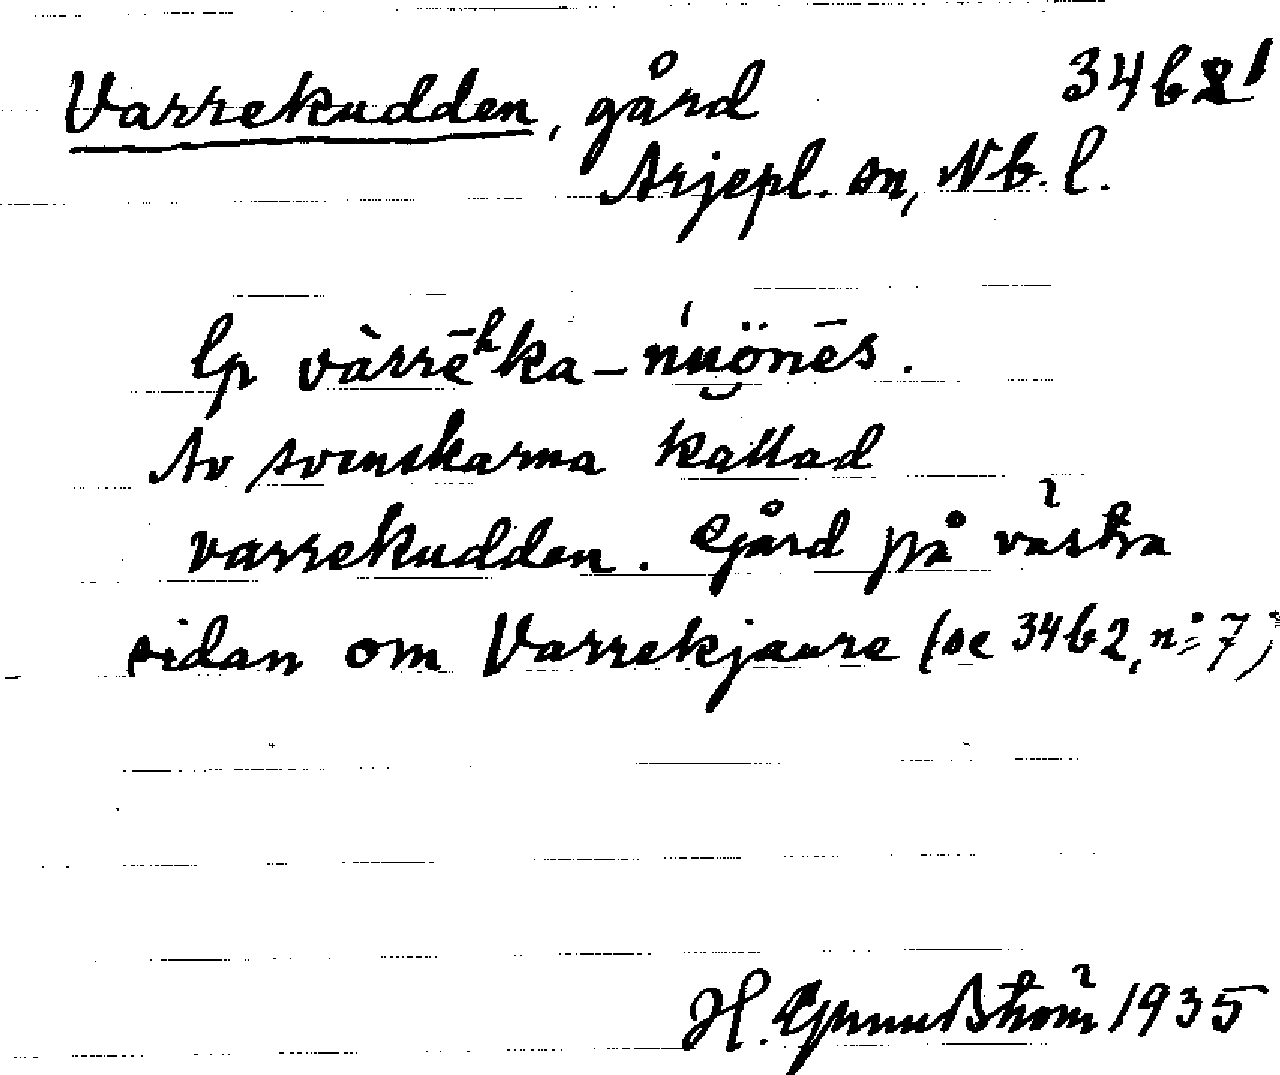 Varrekudden, gård 34b1
Arjepl. sn, Nb. l.
lp vàrrēʰka-
Av svenskarna kallad
varrekudden. Gård på västra
sidan om Varrekjaure (se 34b2, nº 7)
H. Grundström 1935